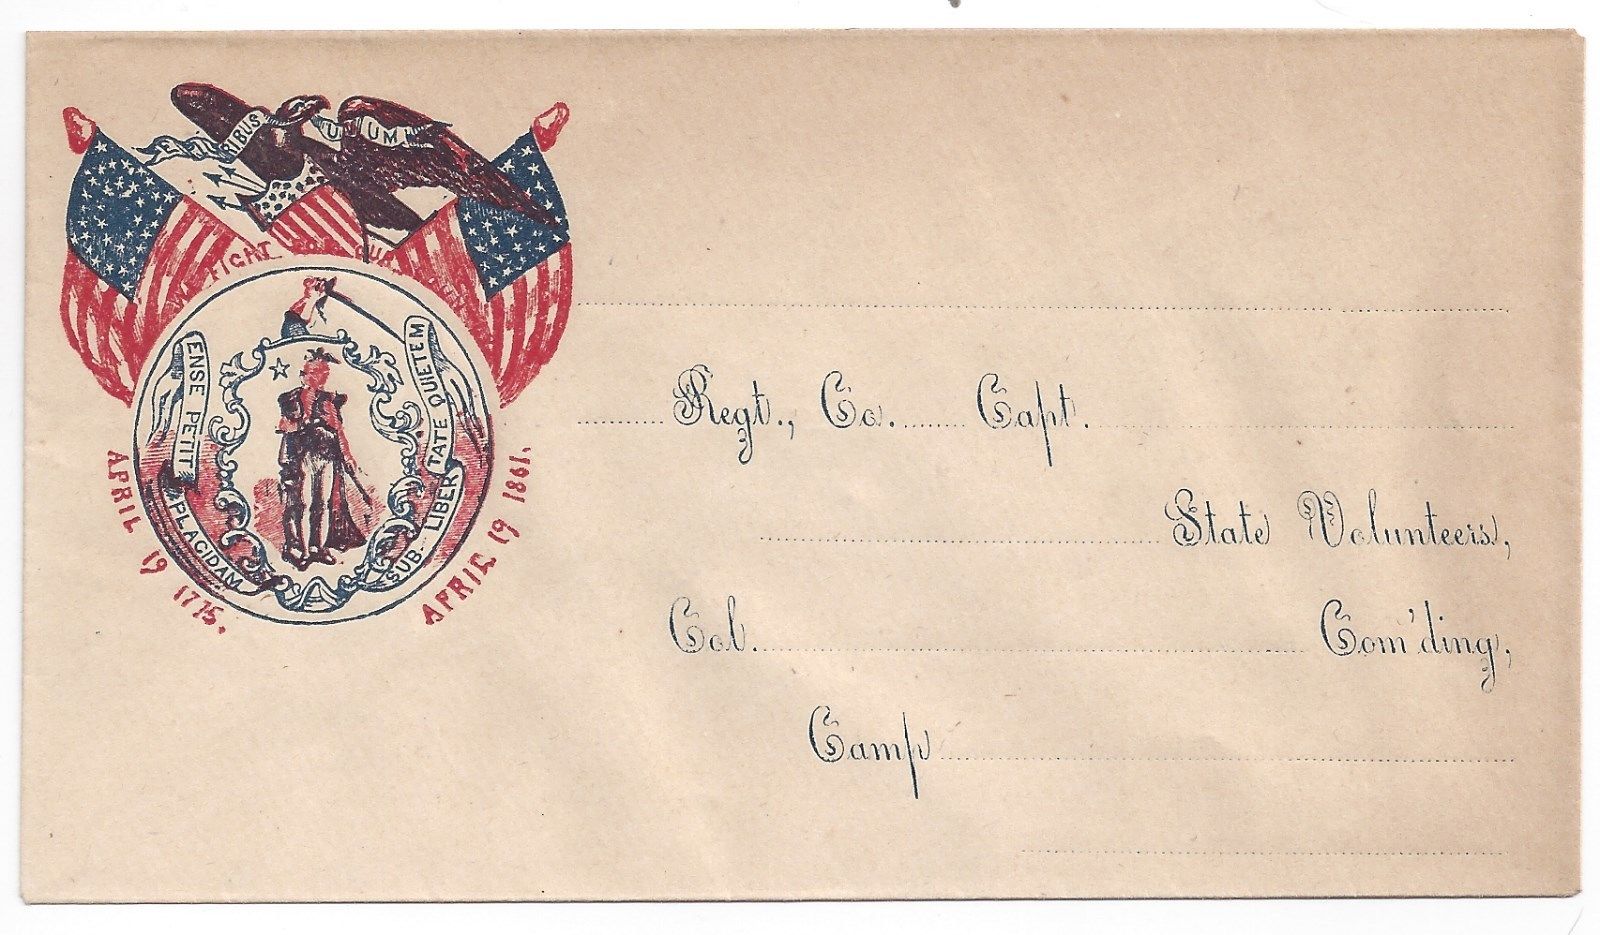 E PLURIBUS UNUM
FIGHT FOR OUR
ENSE PETIT PLACIDAM SUB LIBERTATE QUIETEM
APRIL 19 1775.
APRIL 19 1861.
Regt., Co. Capt.
State Volunteers,
Col. Com'ding,
Camp